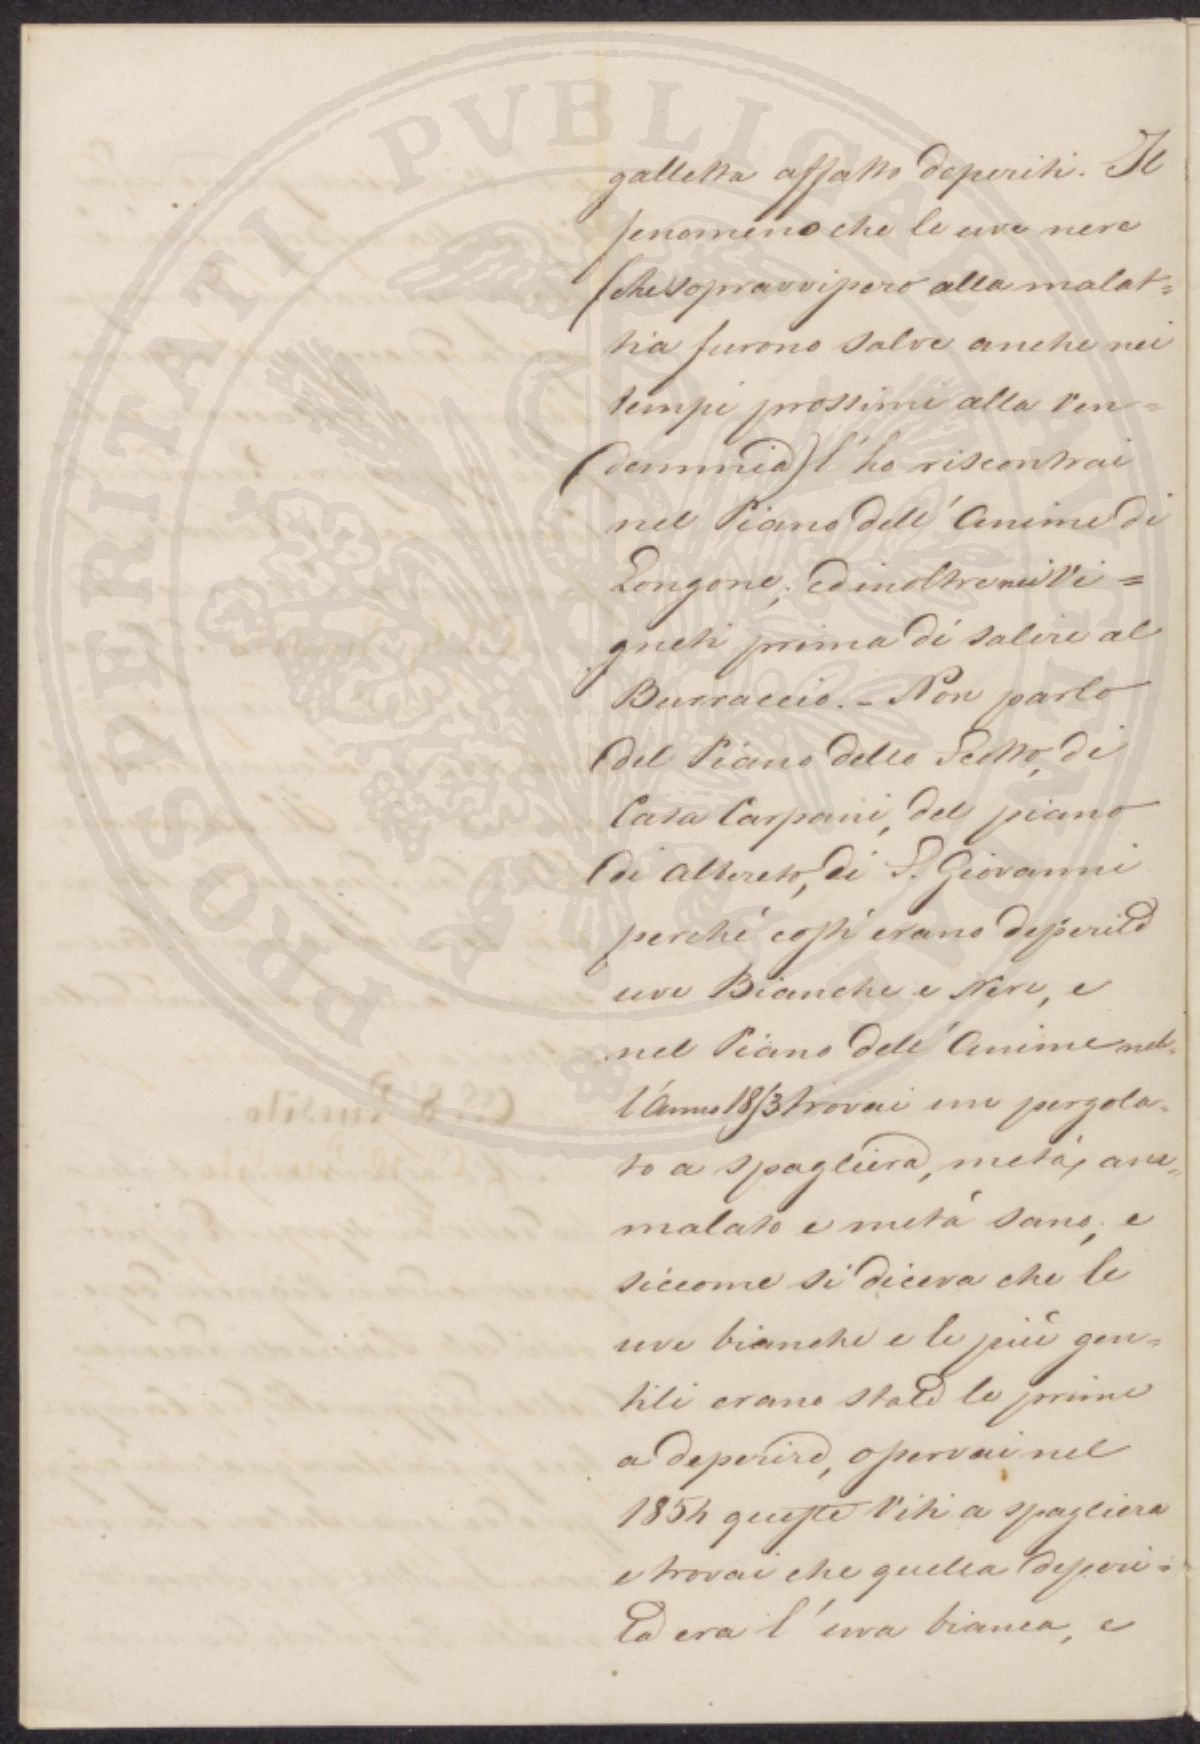 galletta affatto deperiti. Il
fenomeno che le uve nere
(che sopravvissero alla malat=
tia furono salve anche nei
tempi prossimi alla ven=
demmia) l'ho riscontrai
nel Piano dell'Anime di
Longone; ed inoltre nei Vi=
gneti prima di salire al
Burraccio. - Non parlo
del Piano dello Scotto, di
Casa Carpani, del piano
di Altereto, di S. Giovanni
perché costì erano deperite
uve Bianche e Nere, e
nel Piano dell'Anime nel=
l'Anno 1853 trovai un pergola=
to a spagliera, metà, am=
malato e metà sano; e
siccome si diceva che le
uve bianche e le più gen=
tili erano state le prime
a deperire, osservai nel
1854 queste Viti a spagliera
e trovai che quella deperi=
ta era l'uva bianca, e
PROSPERITATI PVBLICAE AVGENDAE